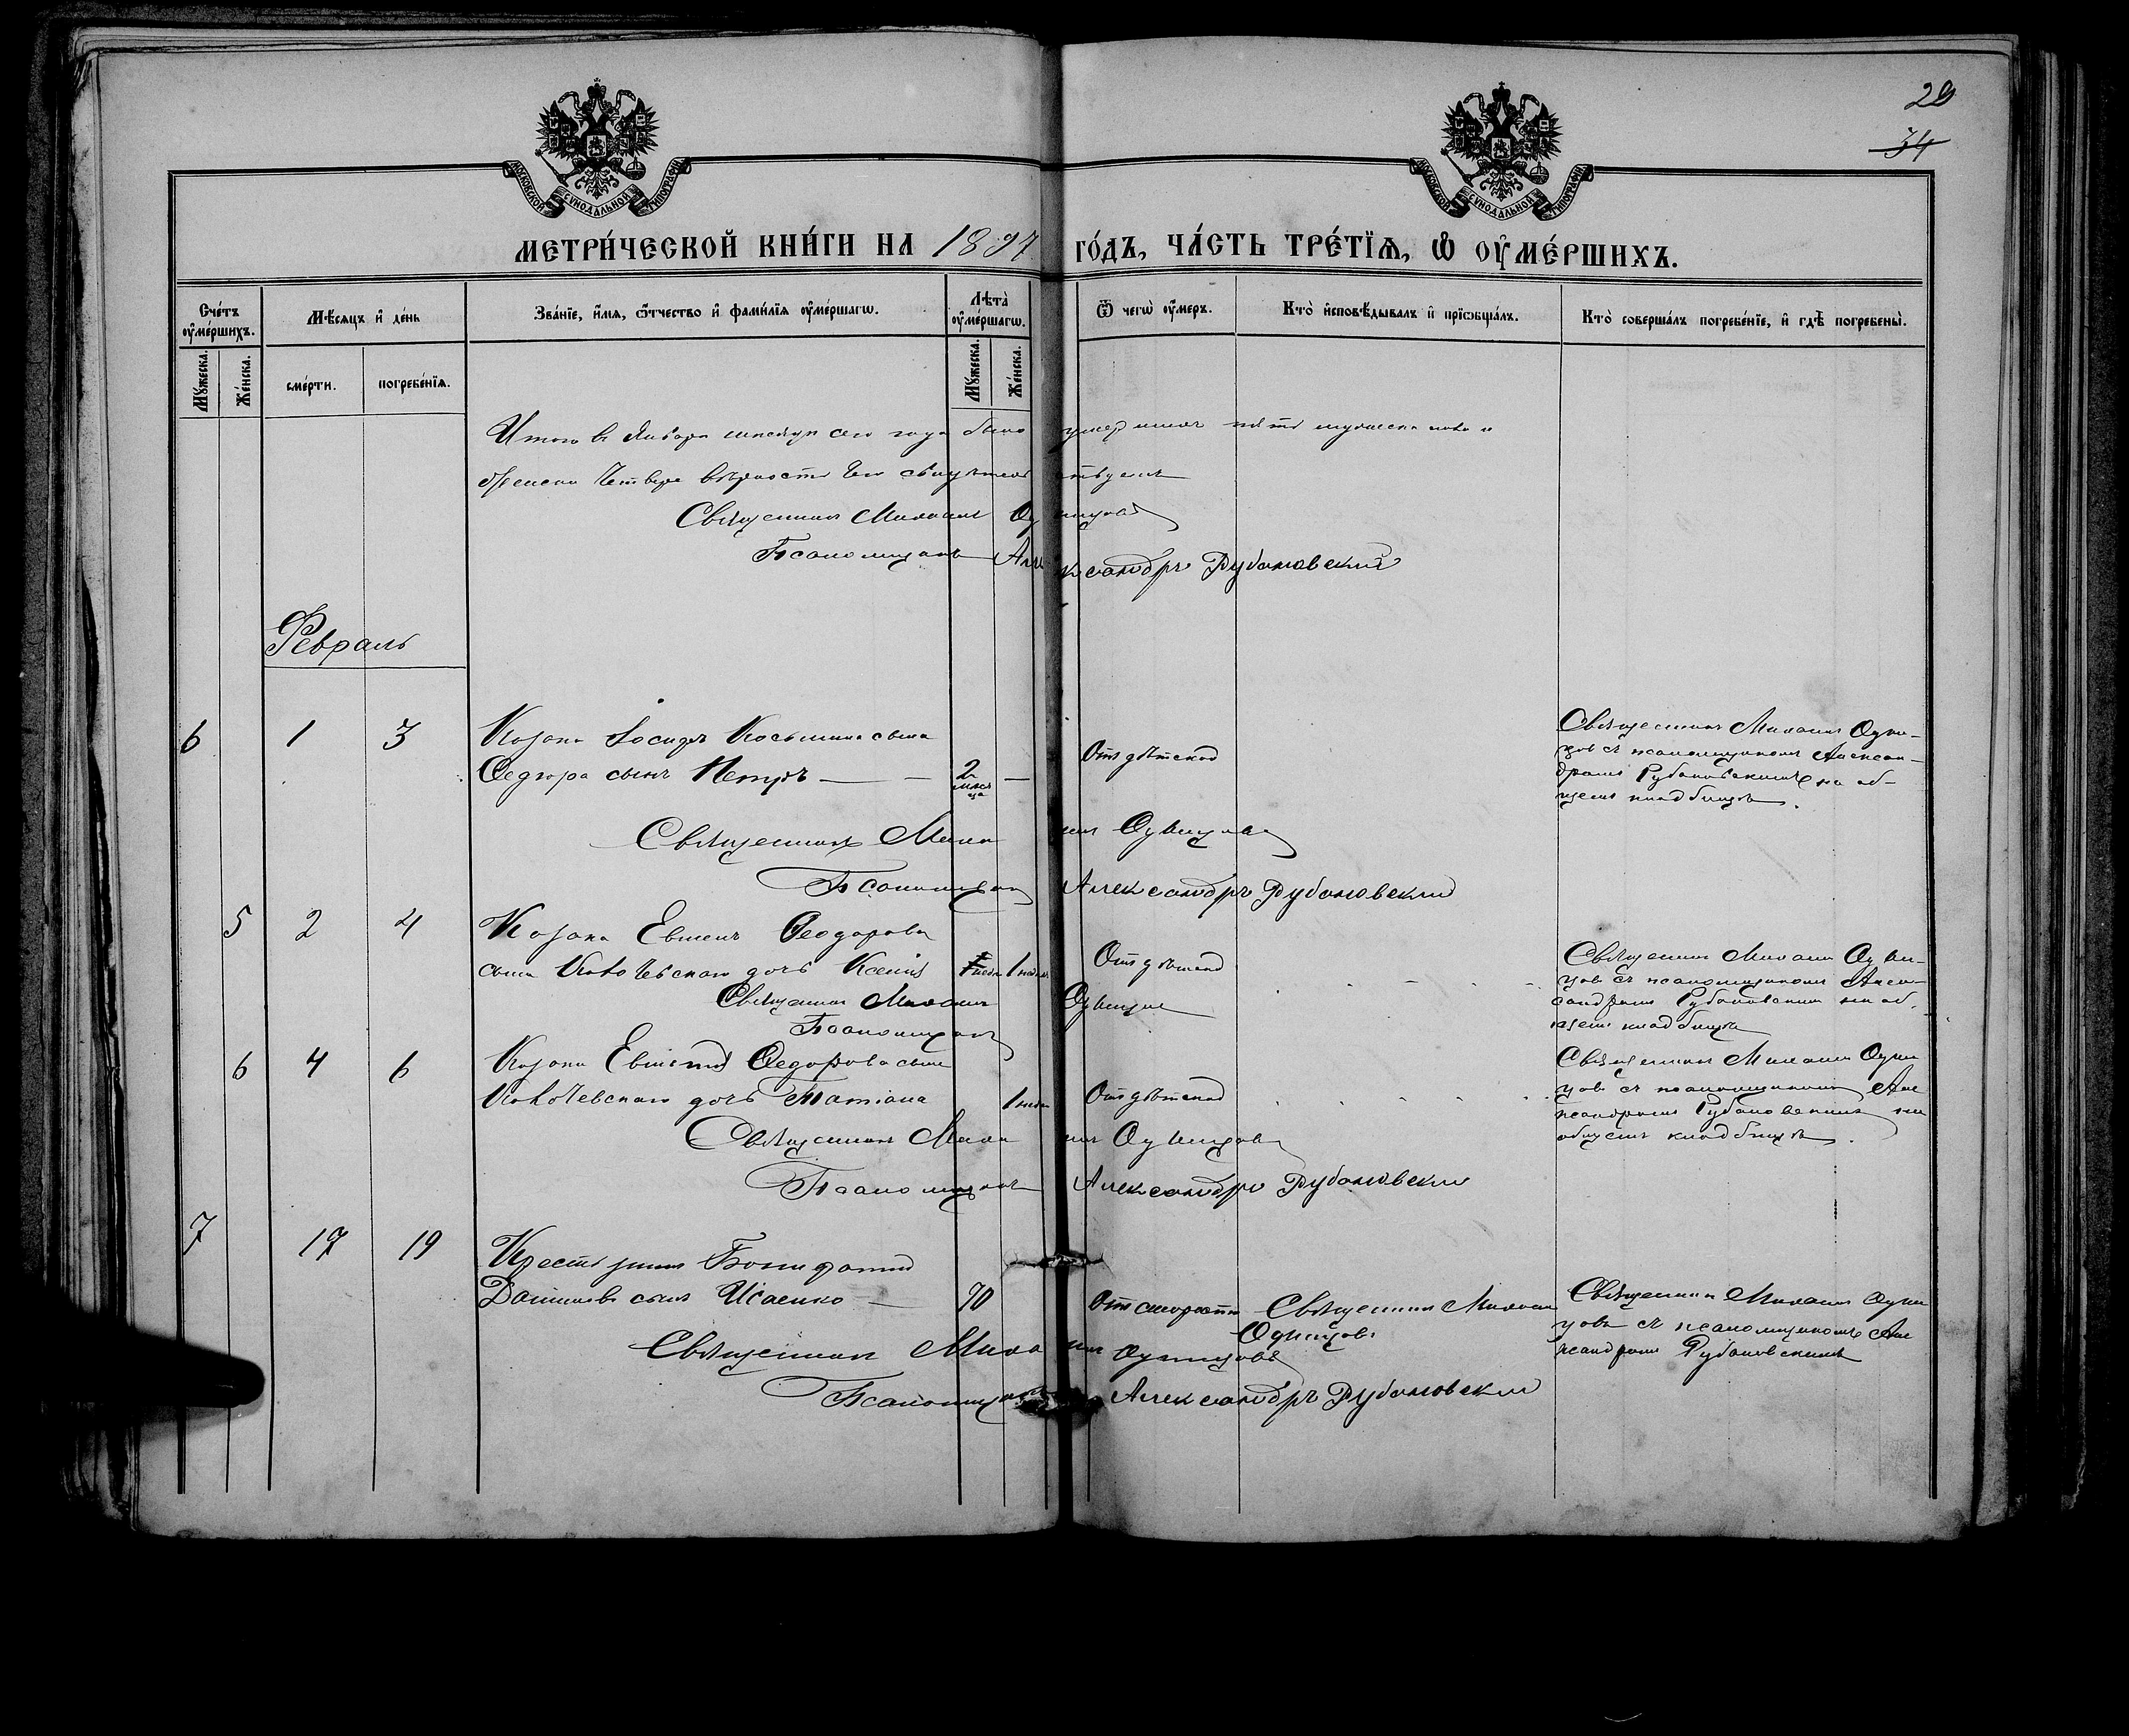 29
34
МОСКОВСКОЙ СѴНОДАЛЬНОЙ ТИПОГРАФІИ
МОСКОВСКОЙ СѴНОДАЛЬНОЙ ТИПОГРАФІИ
МЕТРИ́ЧЕСКОЙ КНИ́ГИ НА 1897 ГО́ДЪ, ЧА́СТЬ ТРЕ́ТЇѦ, Ѡ҆ ОУ҆МЕ́РШИХЪ.
Сче́тъ оу҆ме́ршихъ.
Мѣ́сяцъ и҆ де́нь
Зва́нїе, и҆́мя, ѻ҆́тчество и҆ фами́лїя оу҆ме́ршагѡ.
Лѣта̀ оу҆ме́ршагѡ.
Ѿ чегѡ̀ оу҆́меръ.
Кто̀ и҆сповѣ́дывалъ и҆ прїѡбща́лъ.
Кто̀ соверша́лъ погребе́нїе, и҆ гдѣ̀ погребены̀.
Му́жеска.
Же́нска.
сме́рти.
погребе́нїя.
Му́жеска.
Же́нска.
Итого въ Январѣ мѣсяцѣ сего года было умершихъ пять мужеска пола и
женска четыре вѣрности чего свидѣтельствуемъ
Священникъ Михаилъ Одинцовъ
Псаломщикъ Александръ Рубановскій
Февраль
6 1 3 Козака Косьмина сына
Федгора сынъ Петръ — — 2 мѣсяца — Отъ дѣтской
Священникъ Михаилъ Один-
цовъ съ псаломщикомъ Алексан-
дромъ Рубановскимъ на об-
щемъ кладбищѣ.
Священникъ Михаилъ Одинцовъ
Псаломщикъ Александръ Рубановскій
5 2 4 Козака Евгенія Феодорова
сына дочь Ксенія 1 недѣл. Отъ дѣтской
Священникъ Михаилъ Один-
цовъ съ псаломщикомъ Алек-
сандромъ Рубановскимъ на об-
щемъ кладбищѣ
Священникъ Михаилъ Одинцовъ
Псаломщикъ
6 4 6 Козака Евгенія Федорова сына
дочь Татіана 1 недѣл. Отъ дѣтской
Священникъ Михаилъ Один
цовъ съ псаломщикомъ Але
ксандромъ Рубановскимъ на
общемъ кладбищѣ.
Священникъ Михаилъ Одинцовъ
Псаломщикъ Александръ Рубановскій
7 17 19 Крестьянинъ Бонифатій
Даниловъ сынъ Исаенко — 70 Отъ старости Священникъ Михаилъ
Одинцовъ
Священникъ Михаилъ Один
цовъ съ псаломщикомъ Але
ксандромъ Рубановскимъ
Священникъ Михаилъ Одинцовъ
Псаломщикъ Александръ Рубановскій